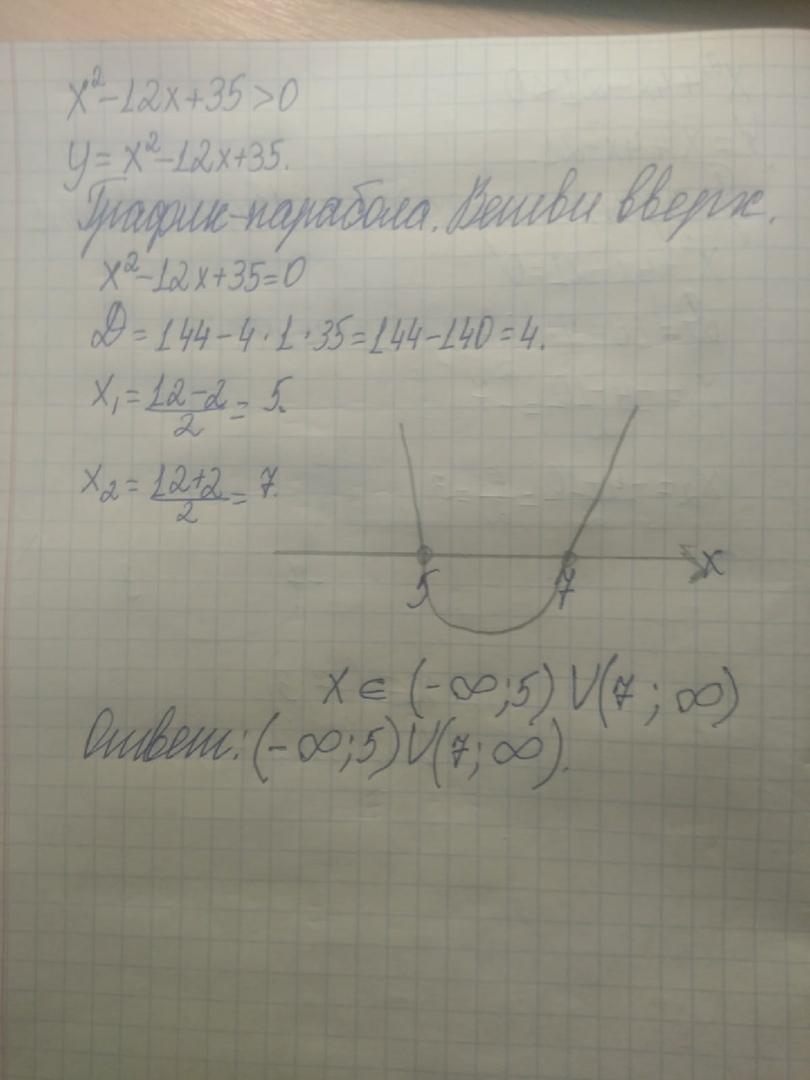 x²-12x+35>0
y=x²-12x+35.
График-парабола. Ветви вверх.
x²-12x+35=0
D=144-4·1·35=144-140=4.
x₁=(12-2)/2=5.
x₂=(12+2)/2=7.
5 7 x
x∈(-∞;5)∪(7;∞)
Ответ:(-∞;5)∪(7;∞).